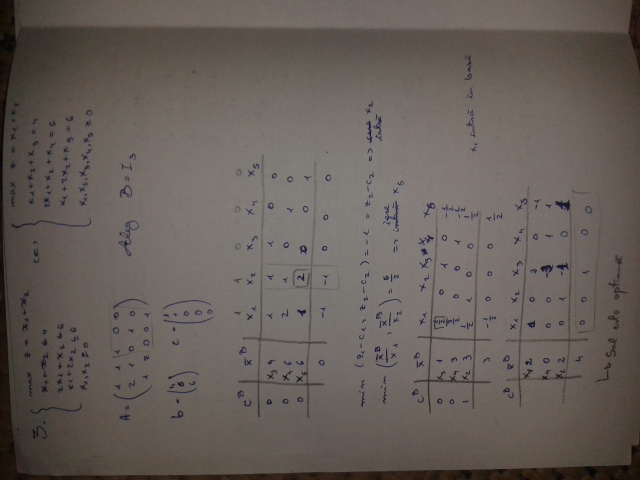 3.
max z = x1+x2
x1+x2 ≤ 4
2x1+x2 ≤ 6
x1+2x2 ≤ 6
x1,x2 ≥ 0
(=>
max z = x1+x2
x1+x2+x3 = 4
2x1+x2+x4 = 6
x1+2x2+x5 = 6
x1,x2,x3,x4,x5 ≥ 0
A = (1 1 1 0 0
2 1 0 1 0
1 2 0 0 1)
Aleg B = I3
b = (4
6
6)
c = (1
1
0
0
0)
1 1 0 0 0
c^B x^B x1 x2 x3 x4 x5
0 x3 4 1 1 1 0 0
0 x4 6 2 1 0 1 0
0 x5 6 1 2 0 0 1
0 -1 -1 0 0 0
min (z1-c1, z2-c2) = -1 = z2-c2 => x2 intră
min (x^B/x1, x^B/x2) = 6/2 => iese x5
c^B x^B x1 x2 x3 x4 x5
0 x3 1 1/2 0 1 0 -1/2
0 x4 3 3/2 0 0 1 -1/2
1 x2 3 1/2 1 0 0 1/2
3 -1/2 0 0 0 1/2
x1 intră în bază
c^B x^B x1 x2 x3 x4 x5
x1 2 1 0 2 0 -1
x4 0 0 0 -3 1 1
x2 2 0 1 -1 0 1
4 0 0 1 0 0
Sol este optimă